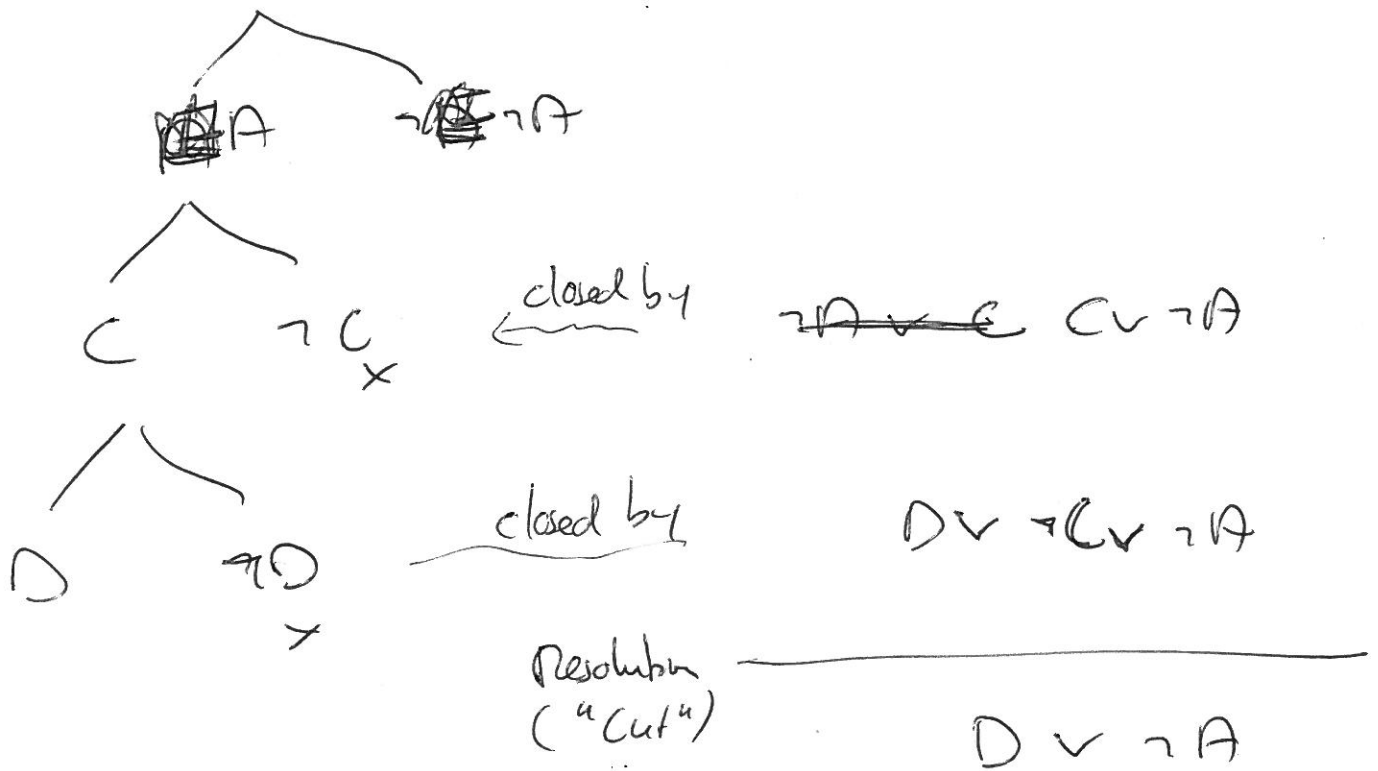 A ¬A
C ¬C closed by C ∨ ¬A
x
D ¬D closed by D ∨ ¬C ∨ ¬A
x
Resolution
("Cut") D ∨ ¬A